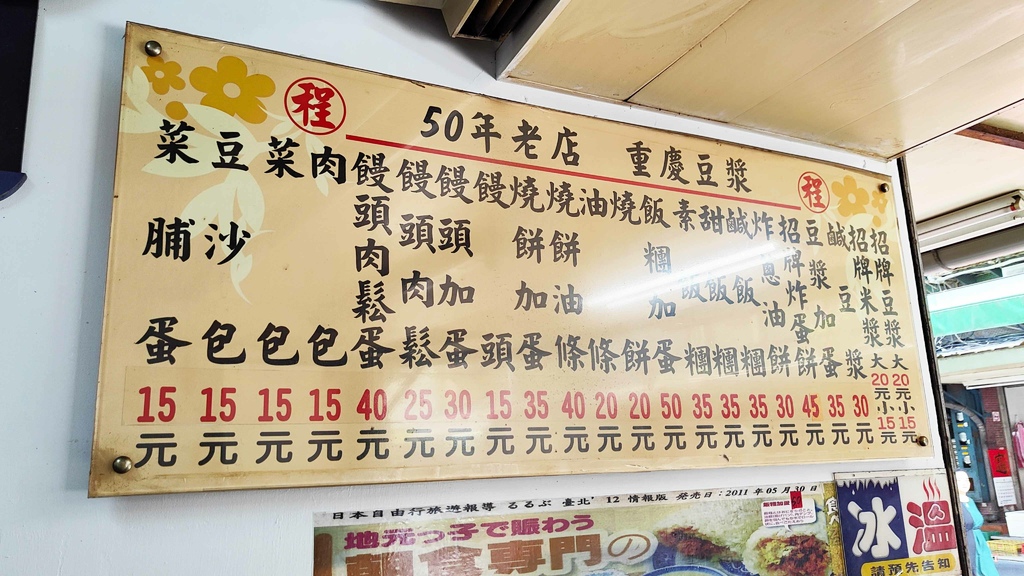 程
50年老店 重慶豆漿
程
招牌豆漿大20元小15元
招牌米漿大20元小15元
鹹豆漿30元
豆漿加蛋35元
招牌炸蛋餅45元
炸蔥油餅30元
鹹飯糰35元
甜飯糰35元
素飯糰35元
飯糰加蛋50元
燒餅20元
油條20元
燒餅油條40元
燒餅加蛋35元
饅頭15元
饅頭加蛋30元
饅頭肉鬆25元
饅頭肉鬆蛋40元
肉包15元
菜包15元
豆沙包15元
菜脯蛋15元
日本自由行旅遊報導 るるぶ 臺北' 12 情報版 発売日:2011 年 05 月 30 日
地元っ子で賑わう
朝食専門の
冰
溫
請預先告知